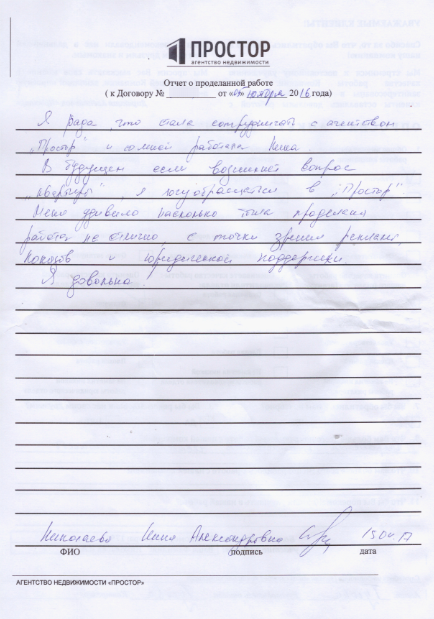 ПРОСТОР
АГЕНТСТВО НЕДВИЖИМОСТИ
Отчет о проделанной работе
( к Договору № от « » ноября 2016 года)
Я рада, что стала сотрудничать с агентством
"Простор" и со мной работала Нина
В будущем если возникнет вопрос
"квартиры", я буду обращаться в "Простор"
Меня удивило насколько была проделана
работа на отлично с точки зрения рекламы,
показов и юридической поддержки.
Я довольна.
Николаева Нина Александровна 15.04.17
ФИО подпись дата
АГЕНТСТВО НЕДВИЖИМОСТИ «ПРОСТОР»